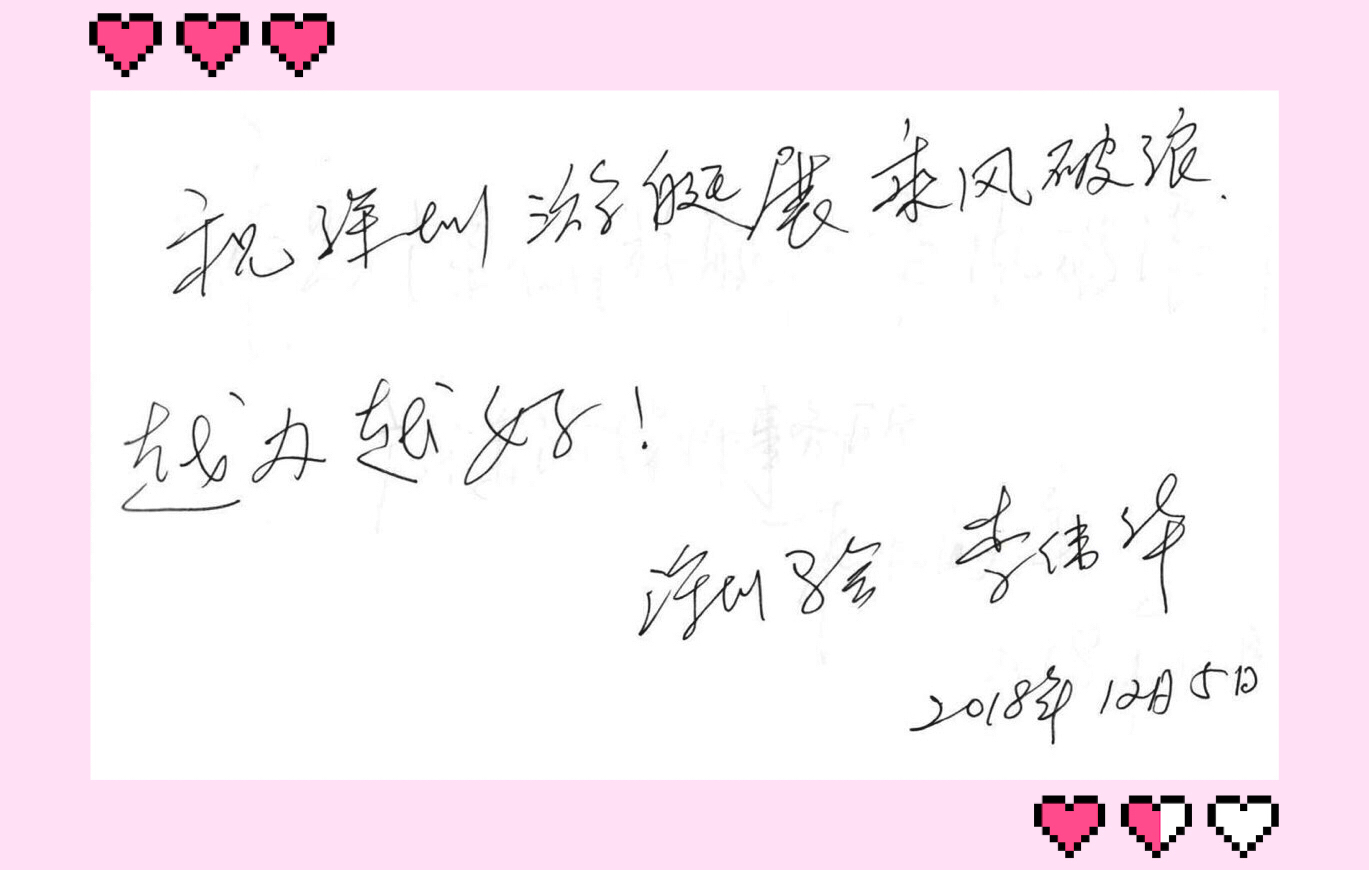 祝深圳游艇展乘风破浪.
越办越好!
深圳贸促会 李伟华
2018年12月5日